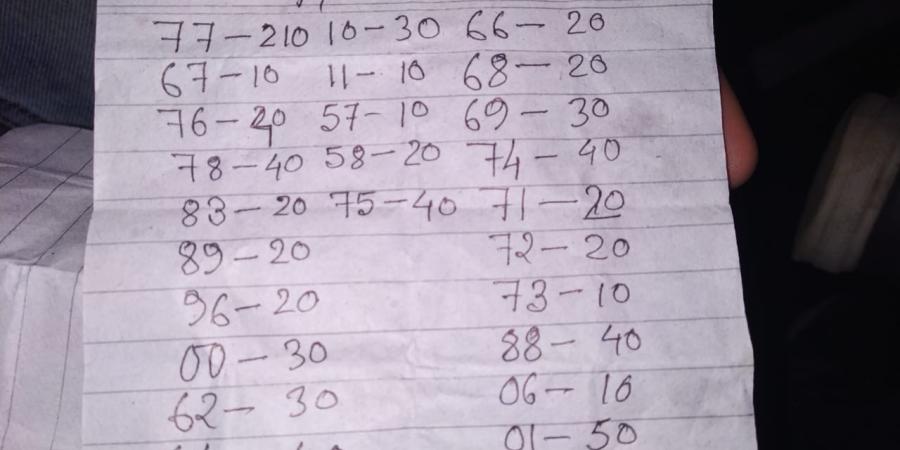 77-210 10-30 66-20
67-10 11-10 68-20
76-20 57-10 69-30
78-40 58-20 74-40
83-20 75-40 71-20
89-20 72-20
96-20 73-10
00-30 88-40
62-30 06-10
01-50